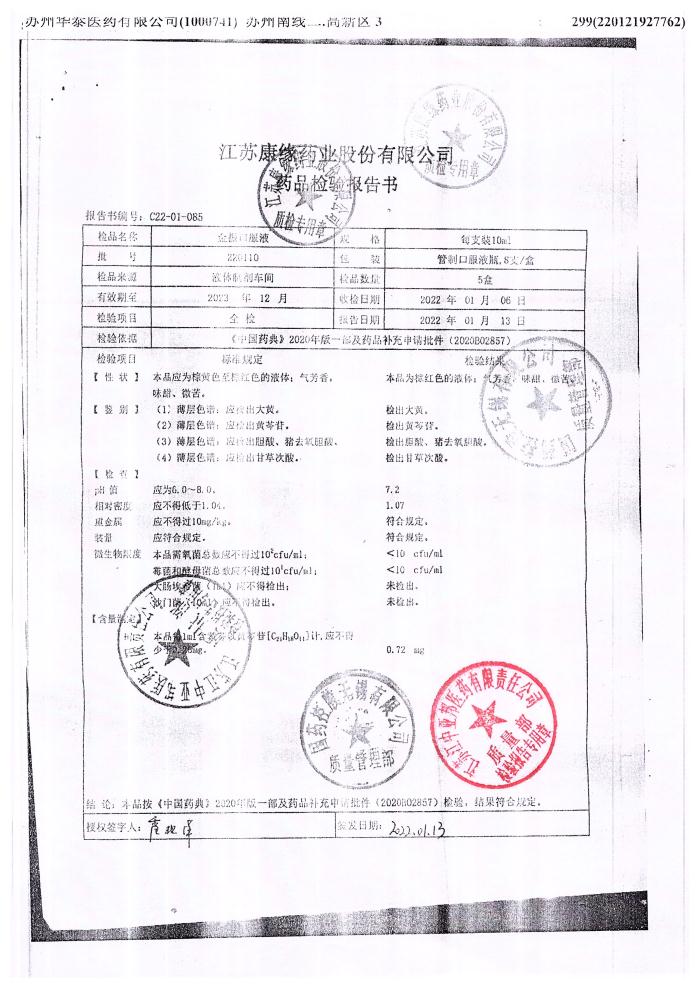 苏州华泰医药有限公司(1000741) 苏州南线 高新区 3 299(220121927762)
江苏康缘药业股份有限公司
质检专用章
江苏康缘药业股份有限公司
药品检验报告书
质检专用章
报告书编号: C22-01-085
检品名称 金振口服液 规 格 每支装10ml
批 号 220110 包 装 管制口服液瓶, 8支/盒
检品来源 液体制剂车间 检品数量 5盒
有效期至 2023 年 12 月 收检日期 2022 年 01 月 06 日
检验项目 全 检 报告日期 2022 年 01 月 13 日
检验依据 《中国药典》2020年版一部及药品补充申请批件(2020B02857)
检验项目 标准规定 检验结果
【 性 状 】 本品应为棕黄色至棕红色的液体; 气芳香, 本品为棕红色的液体; 气芳香, 味甜、微苦
味甜、微苦。
【 鉴 别 】 (1) 薄层色谱: 应检出大黄。 检出大黄。
(2) 薄层色谱: 应检出黄芩苷。 检出黄芩苷。
(3) 薄层色谱: 应检出胆酸、猪去氧胆酸。 检出胆酸、猪去氧胆酸。
(4) 薄层色谱: 应检出甘草次酸。 检出甘草次酸。
【 检 查 】
pH 值 应为6.0~8.0。 7.2
相对密度 应不得低于1.04。 1.07
重金属 应不得过10mg/kg。 符合规定。
装量 应符合规定。 符合规定。
微生物限度 本品需氧菌总数应不得过10²cfu/ml; <10 cfu/ml
霉菌和酵母菌总数应不得过10¹cfu/ml; <10 cfu/ml
大肠埃希菌(1ml)应不得检出; 未检出。
沙门菌(10ml)应不得检出。 未检出。
【含量测定】
本品每1ml含黄芩以黄芩苷[C₂₁H₁₈O₁₁]计, 应不得
少于 mg。 0.72 mg
国药控股无锡有限公司
质量管理部
江苏江中亚邦医药有限责任公司
质量部
检验报告专用章
结 论: 本品按《中国药典》2020年版一部及药品补充申请批件(2020B02857)检验, 结果符合规定。
授权签字人: 签发日期: 2022.01.13